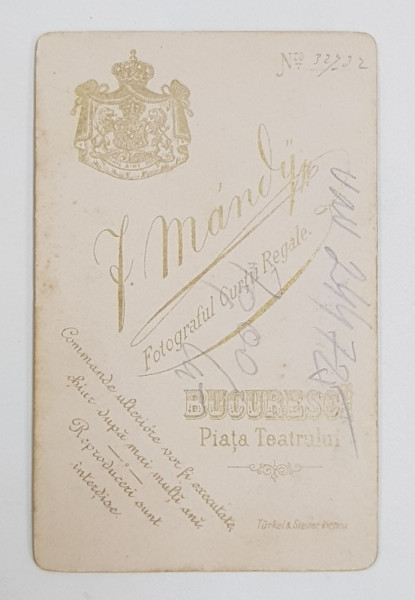 No 32732
J. Mándy
Fotograful Curții Regale.
BUCURESCĬ
Piața Teatrului
Commande ulterióre vor fi executate,
chiar după mai mulți ani.
Reproduceri sunt
interdise.
Türkel & Steiner